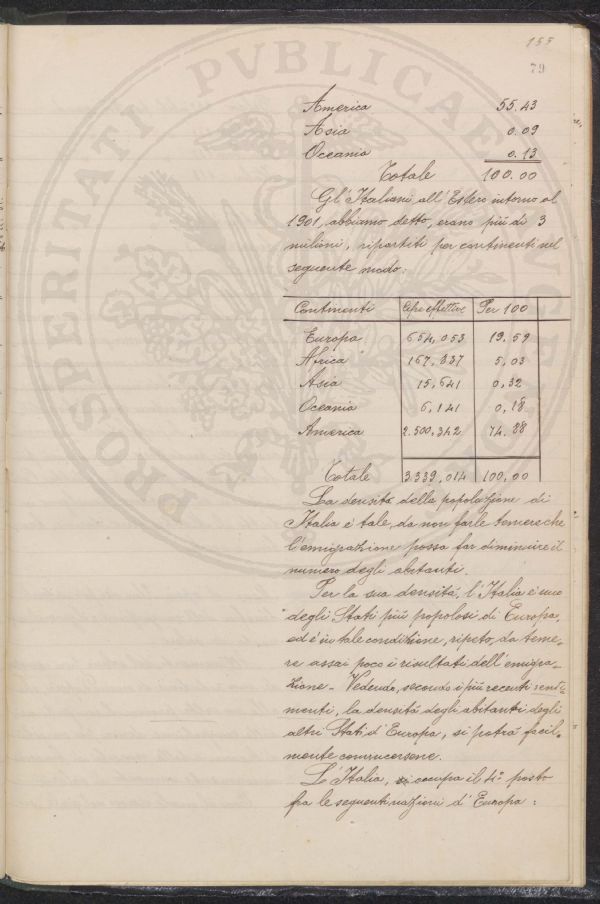 155
79
America 55.43
Asia 0.09
Oceania 0.13
Totale 100.00
Gl'Italiani all'Estero intorno al
1901, abbiamo detto, erano più di 3
milioni, ripartiti per continenti nel
seguente modo:
Continenti Cifre effettive Per 100
Europa 654,053 19.59
Africa 167.337 5,03
Asia 15,641 0,32
Oceania 6,141 0,18
America 2.500,342 74.88
Totale 3339,014 100,00
La densità della popolazione di
Italia è tale, da non farle temere che
l'emigrazione possa far diminuire il
numero degli abitanti.
Per la sua densità, l'Italia è uno
degli Stati più popolosi di Europa,
ed è in tale condizione, ripeto, da teme-
re assai poco i risultati dell'emigra-
zione - Vedendo, secondo i più recenti
menti, la densità degli abitanti degli
altri Stati d'Europa, si potrà facil-
mente convincersene.
L'Italia, occupa il 4º posto
fra le seguenti nazioni d'Europa:
PROSPERITATI PVBLICAE AVGENDAE